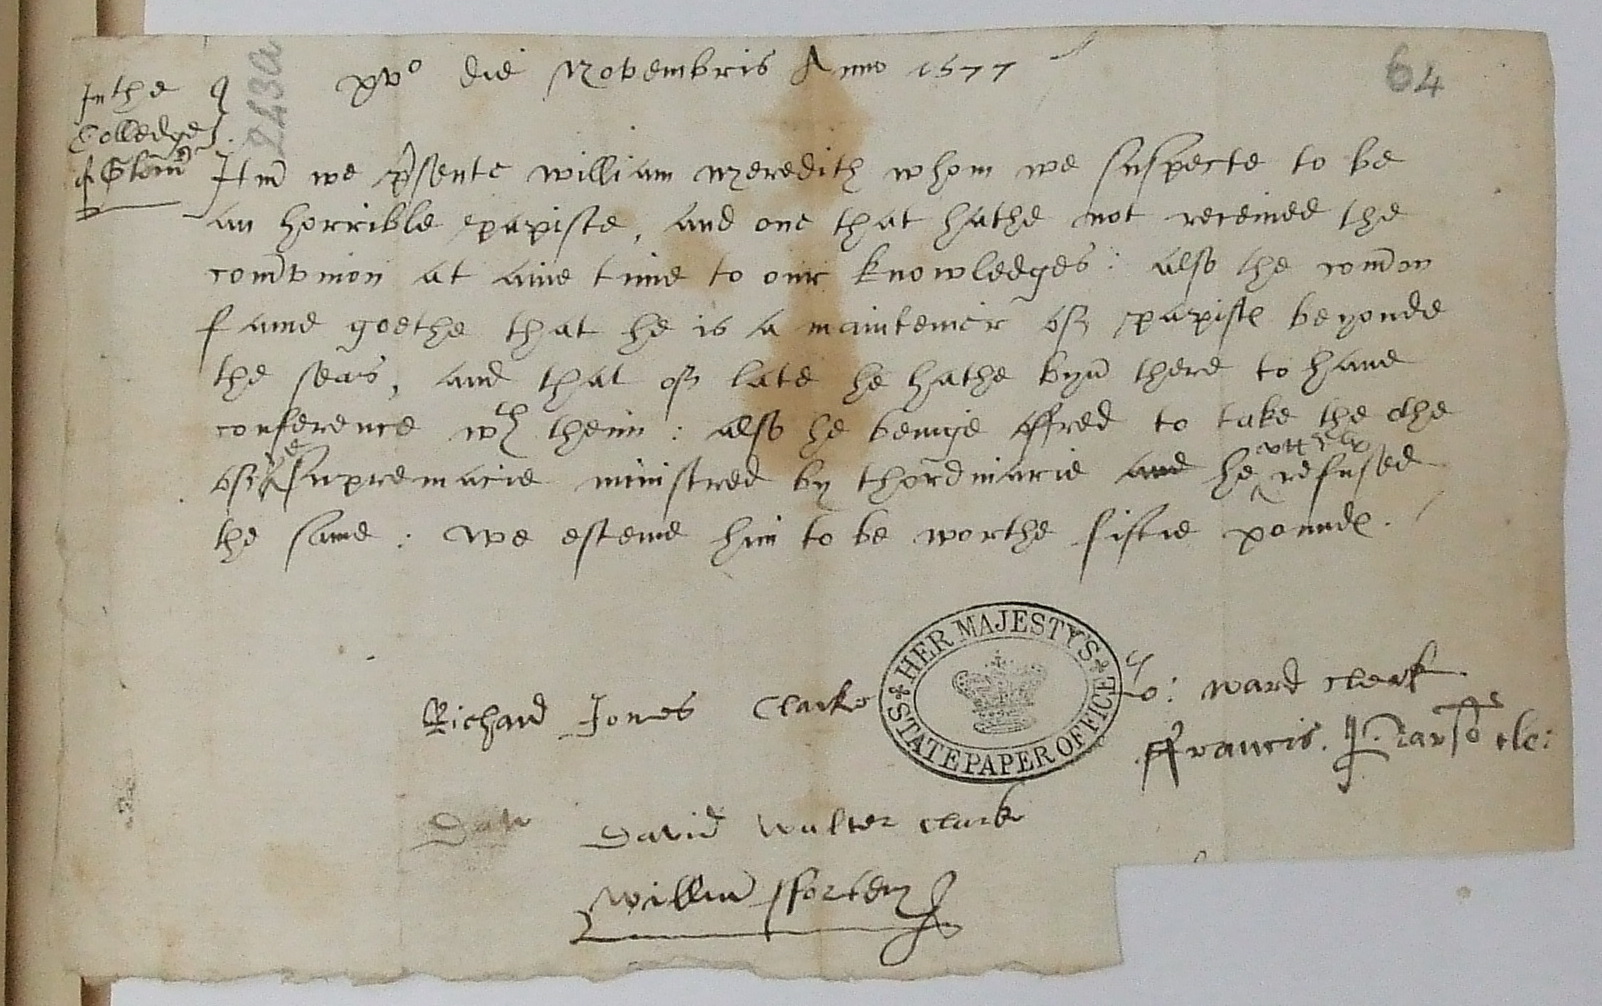 xvo die Novembris Anno 1577
64
243a
In the
Colledge
Itm we psente William Meredith whom we suspecte to be
an horrible papiste, and one that hathe not receiued the
comvnion at anie time to our knowledges : also the comon
fame goethe that he is a mainteiner of papistes beyonde
the seas, and that of late he hathe byn there to haue
conference wth theim : also he beinge offred to take the othe
of the supremacie ministred by thordinarie and he vtterly refused
the same : We esteme him to be worthe fiftie poundes.
HER MAJESTY'S STATE PAPER OFFICE
Richard Jones Clarke
Jo: Ward clerk
ffrancis cle:
Dav
David Walter clark